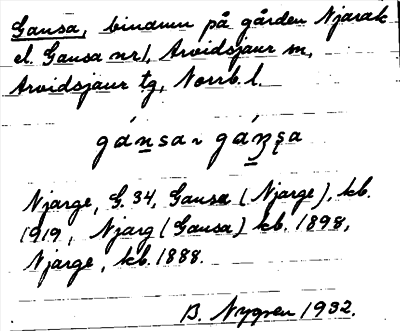 Gausa, binamn på gården Njarak
el. Gausa nr 1, Arvidsjaur sn,
Arvidsjaur tg, Norrb. l.
Njarge, G. 34, Gausa (Njarge), kb.
1919, Njarg (Gausa) kb. 1898,
Njarge, kb. 1888.
B. Nygren 1932.